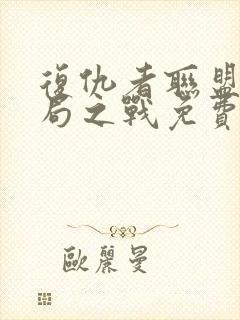 復仇者聯盟
局之戰免費
歐麗曼